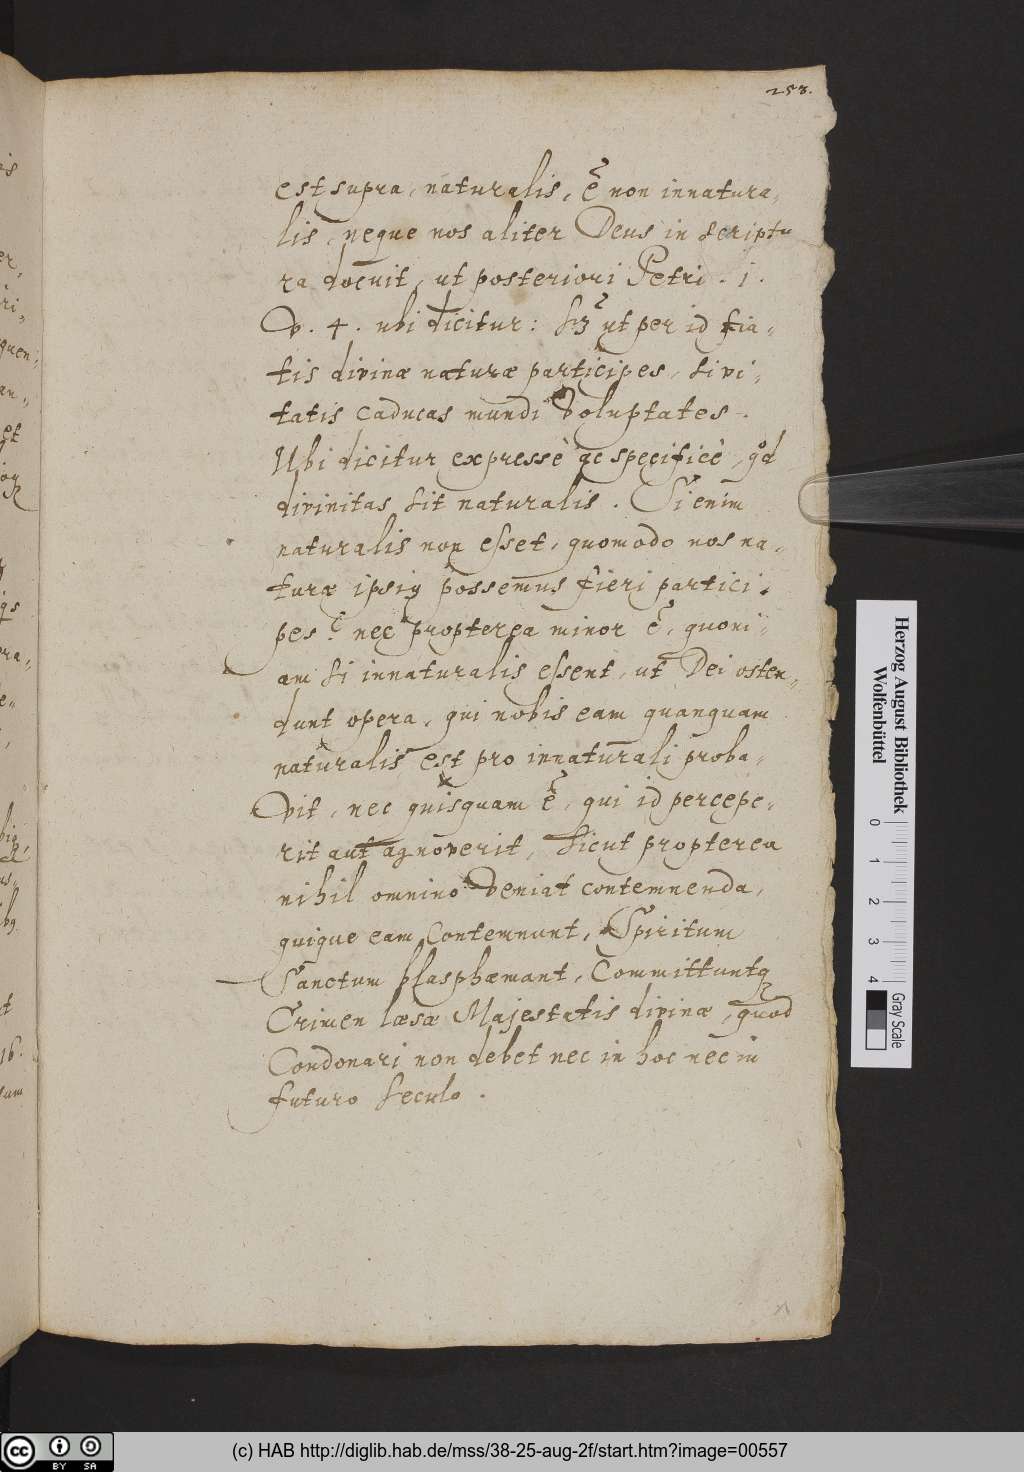 253.
est supra, naturalis, ẽ non innatura-
lis, neque nos aliter Deus in Scriptu
ra docuit, ut posteriori Petri. 1.
V. 4. ubi dicitur: Sꝫ ut per id fia-
tis divinæ naturæ participes, si vi-
tatis caducas mundi Voluptates.
Ubi dicitur expressè ac specificè, qd
divinitas sit naturalis. Si enim
naturalis non esset, quomodo nos na-
turæ ipsiꝰ possemus fieri partici-
pes? nec propterea minor ẽ, quoni-
am si innaturalis essent, ut Dei osten-
dunt opera, qui nobis eam quanquam
naturalis est pro innaturali proba-
vit, nec quisquam ẽ, qui id percepe-
rit aut agnoverit, sicut propterea
nihil omnino Veniat contemnenda,
quique eam Contemnunt, Spiritum
Sanctum blasphæmant, Committuntq
Crimen læsæ Majestatis divinæ, quod
Condonari non debet nec in hoc nec in
futuro seculo.
Herzog August Bibliothek
Wolfenbüttel
0 1 2 3 4
Gray Scale
cc BY SA
(c) HAB http://diglib.hab.de/mss/38-25-aug-2f/start.htm?image=00557